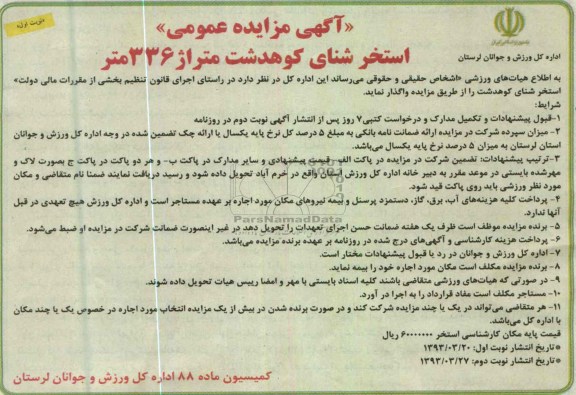 نوبت اول
«آگهی مزایده عمومی»
استخر شنای کوهدشت متراژ ۳۳۶متر
اداره کل ورزش و جوانان لرستان
به اطلاع هیات‌های ورزشی «اشخاص حقیقی و حقوقی می‌رساند این اداره کل در نظر دارد در راستای اجرای قانون تنظیم بخشی از مقررات مالی دولت»
استخر شنای کوهدشت را از طریق مزایده واگذار نماید.
شرایط:
۱-قبول پیشنهادات و تکمیل مدارک و درخواست کتبی۷ روز پس از انتشار آگهی نوبت دوم در روزنامه
۲- میزان سپرده شرکت در مزایده ارائه ضمانت نامه بانکی به مبلغ ۵ درصد کل نرخ پایه یکسال یا ارائه چک تضمین شده در وجه اداره کل ورزش و جوانان
استان لرستان به میزان ۵ درصد نرخ پایه یکسال می‌باشد.
۳-ترتیب پیشنهادات: تضمین شرکت در مزایده در پاکت الف - قیمت پیشنهادی و سایر مدارک در پاکت ب- و هر دو پاکت در پاکت ج بصورت لاک و
مهرشده بایستی در موعد مقرر به دبیر خانه اداره کل ورزش استان واقع در خرم آباد تحویل داده شود و رسید دریافت نمایند ضمنا نام متقاضی و مکان
مورد نظر ورزشی باید روی پاکت قید شود.
۴- پرداخت کلیه هزینه‌های آب، برق، گاز، دستمزد پرسنل و بیمه نیروهای مکان مورد اجاره بر عهده مستاجر است و اداره کل ورزش هیچ تعهدی در قبل
آنها ندارد.
۵- برنده مزایده موظف است ظرف یک هفته ضمانت حسن اجرای تعهدات را تحویل دهد در غیر اینصورت ضمانت شرکت در مزایده او ضبط می‌شود.
۶- پرداخت هزینه کارشناسی و آگهی‌های درج شده در روزنامه بر عهده برنده مزایده می‌باشد.
۷- اداره کل ورزش و جوانان در رد یا قبول پیشنهادات مختار است.
۸- برنده مزایده مکلف است مکان مورد اجاره خود را بیمه نماید.
۹- در صورتی که هیات‌های ورزشی متقاضی باشند کلیه اسناد بایستی با مهر و امضا رییس هیات تحویل داده شوند.
۱۰- مستاجر مکلف است مفاد قرارداد را به اجرا در آورد.
۱۱- هر متقاضی می‌تواند در یک یا چند مزایده شرکت کند و در صورت برنده شدن در بیش از یک مزایده انتخاب مورد اجاره در خصوص یک یا چند مکان
با اداره کل می‌باشد.
قیمت پایه مکان کارشناسی استخر ۶۰۰۰۰۰۰۰ ریال
*تاریخ انتشار نوبت اول: ۱۳۹۳/۰۳/۲۰
*تاریخ انتشار نوبت دوم: ۱۳۹۳/۰۳/۲۷
کمیسیون ماده ۸۸ اداره کل ورزش و جوانان لرستان
ParsNamadData